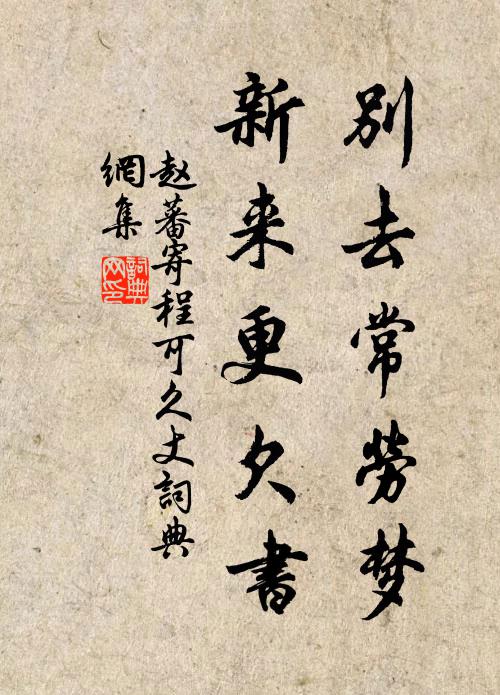 别去常勞梦
新来更欠書
赵蕃寄程可久丈詞典
網集
詞典
网印